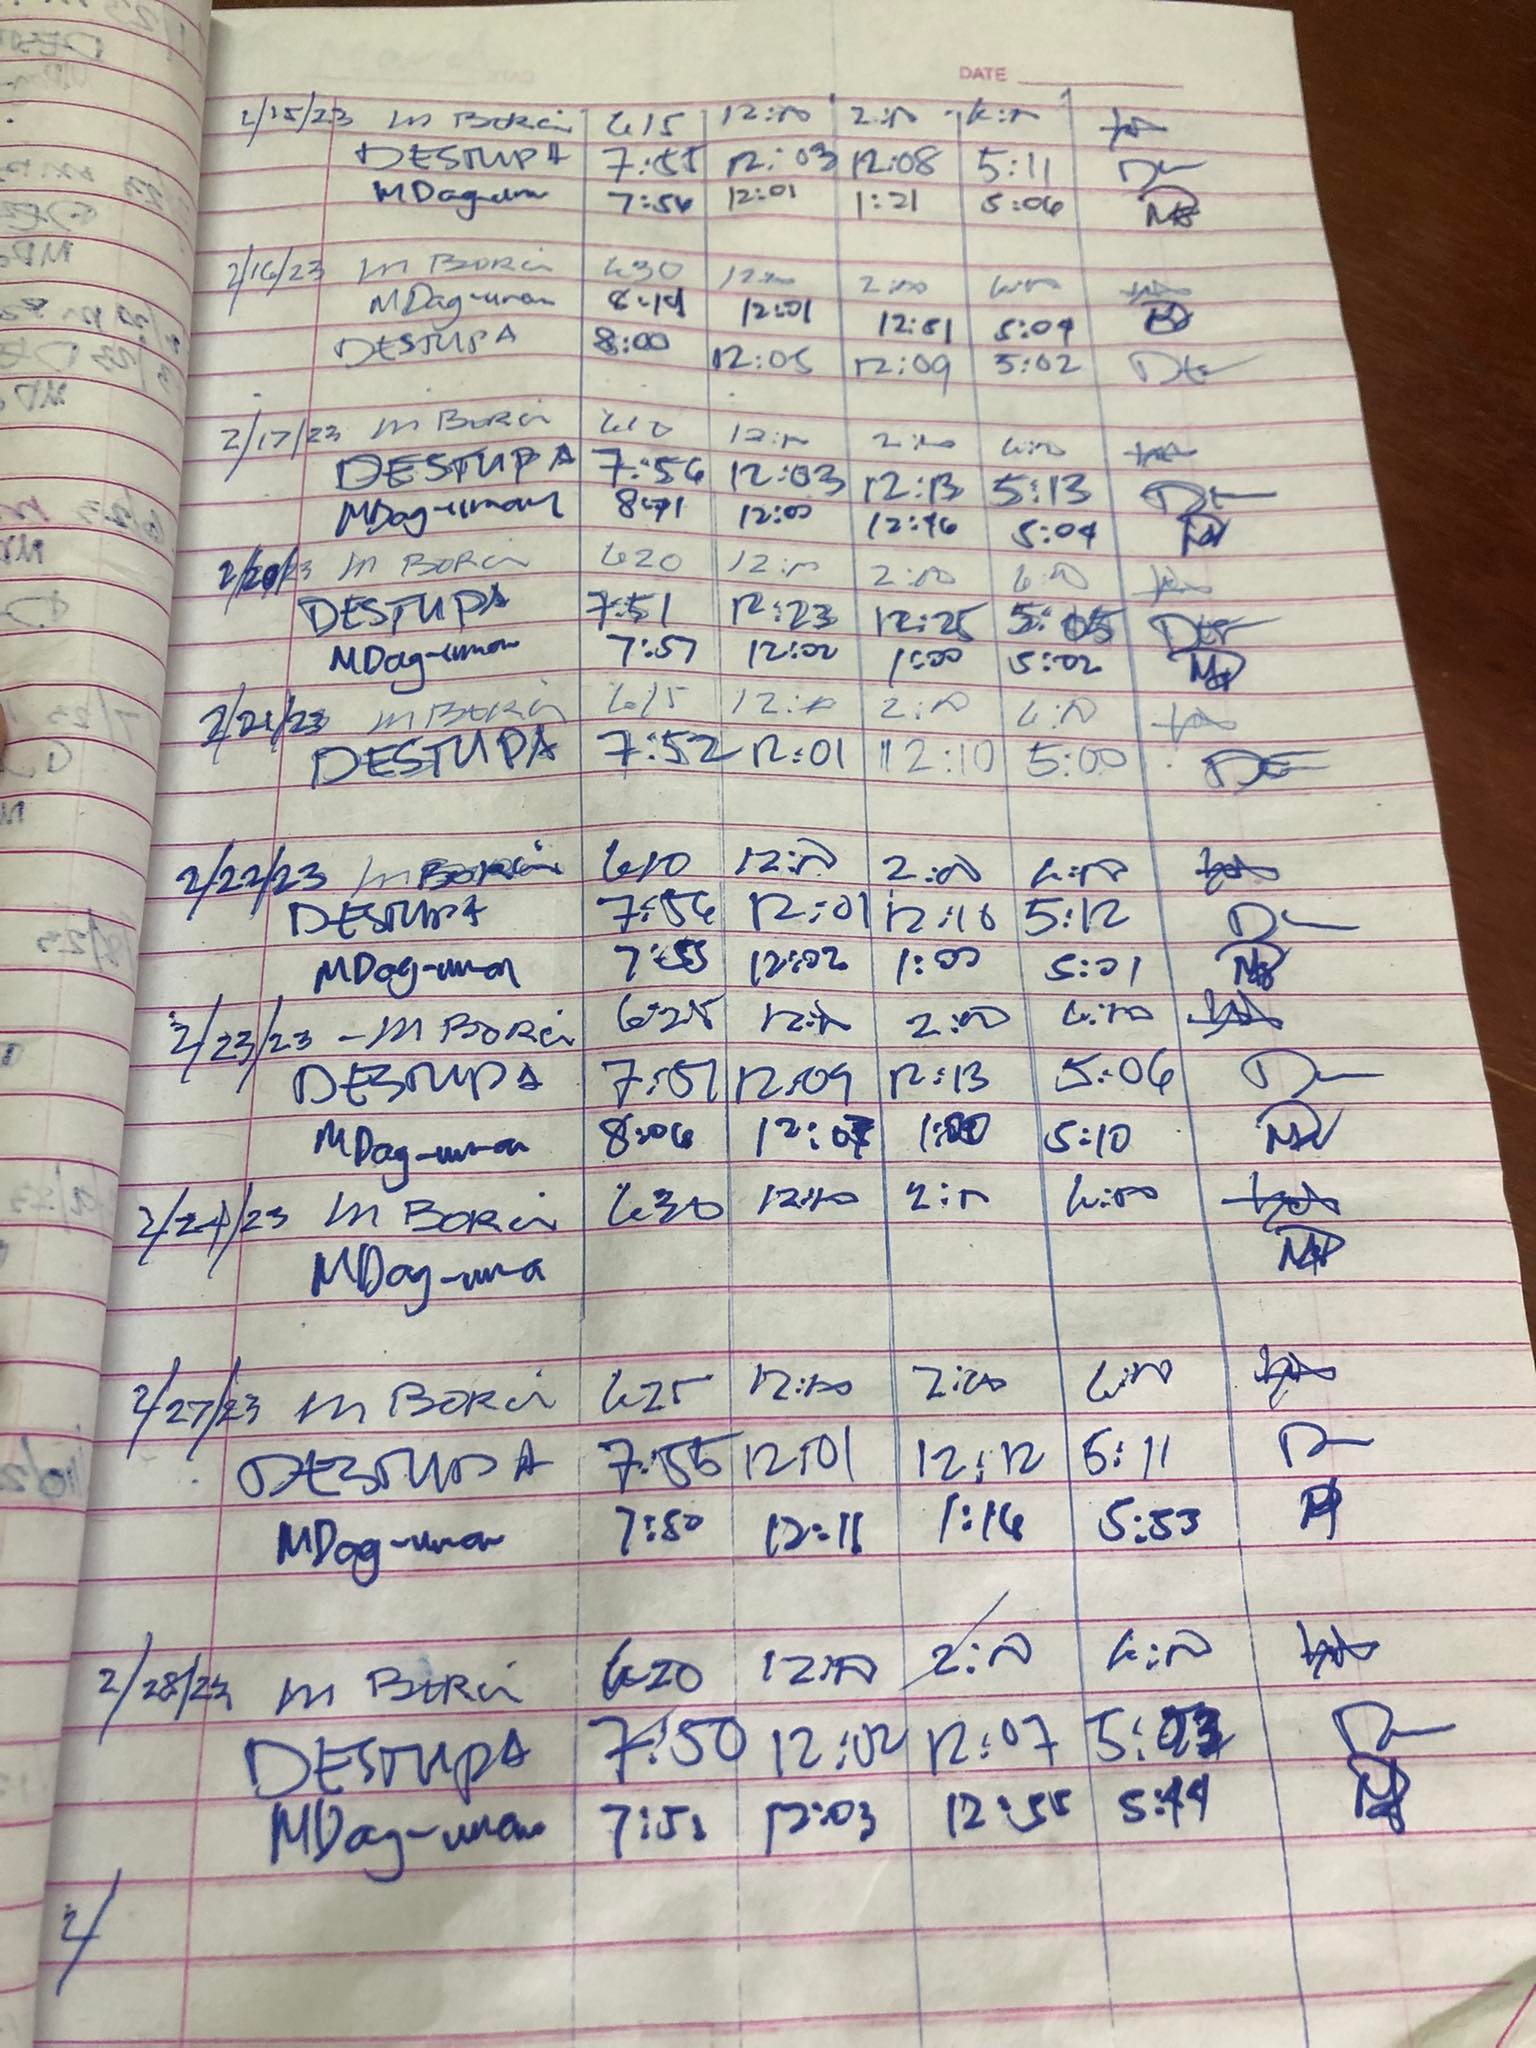 DATE
2/15/23 M Borci 615 12:00 2:00 6:00
DESTUPA 7:55 12:03 12:08 5:11
MDag-uman 7:56 12:01 1:21 5:06
2/16/23 M Borci 630 12:00 2:00 6:00
MDag-uman 12:01 12:51 5:04
DESTUPA 8:00 12:05 12:09 5:02
2/17/23 M Borci 610 12:00 2:00 6:00
DESTUPA 7:56 12:03 12:13 5:13
MDag-uman 12:00 12:46 5:04
2/20/23 M Borci 620 12:00 2:00 6:00
DESTUPA 7:51 12:23 12:25 5:05
MDag-uman 7:57 12:02 1:00 5:02
2/21/23 M Borci 615 12:00 2:00 6:00
DESTUPA 7:52 12:01 12:10 5:00
2/22/23 M Borci 610 12:00 2:00 6:00
DESTUPA 7:56 12:01 12:10 5:12
MDag-uman 7:55 12:02 1:00 5:01
2/23/23 - M Borci 6:25 12:00 2:00 6:00
DESTUPA 7:51 12:09 12:13 5:06
MDag-uman 8:06 12:07 1:00 5:10
2/24/23 M Borci 630 12:00 2:00 6:00
MDag-uman
2/27/23 M Borci 625 12:00 2:00 6:00
DESTUPA 7:55 12:01 12:12 5:11
MDag-uman 7:50 12:11 1:16 5:53
2/28/23 M Borci 620 12:00 2:00 6:00
DESTUPA 7:50 12:02 12:07 5:03
MDag-uman 7:51 12:03 12:55 5:44
2/